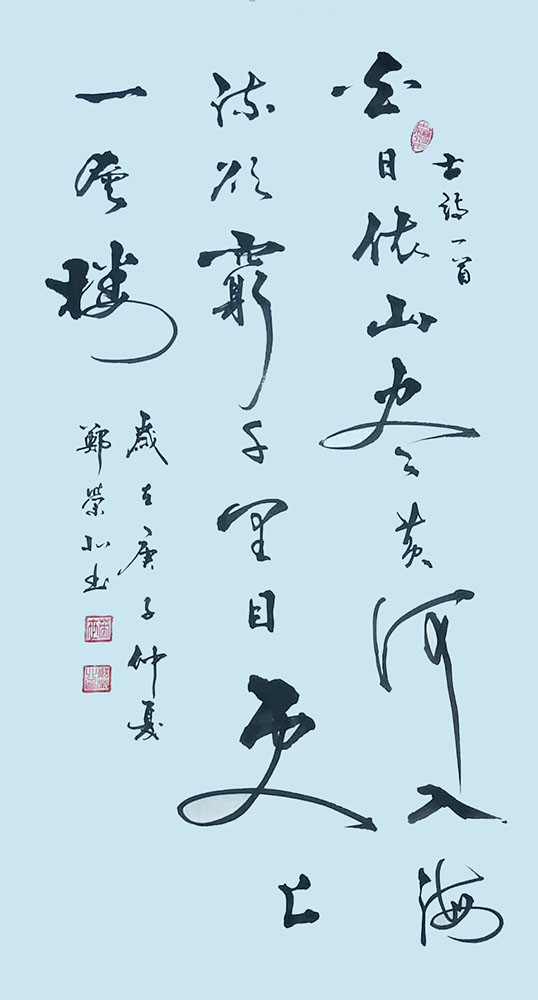 古诗一首
白日依山尽黄河入海
流欲窮千里目更上
一层楼
歲在庚子仲夏
鄭榮书